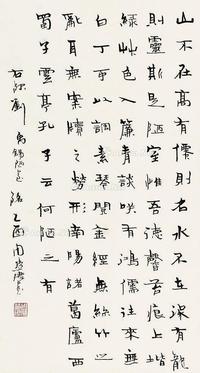 山不在高有僊則名水不在深有龍
則靈斯是陋室惟吾德馨苔痕上堦
綠艸色入簾青談咲有鴻儒往來無
白丁可以調素琴閱金經無絲竹之
亂耳無案牘之勞形南陽諸葛廬西
蜀子雲亭孔子云何陋之有
右錄劉禹錫陋室銘乙酉周